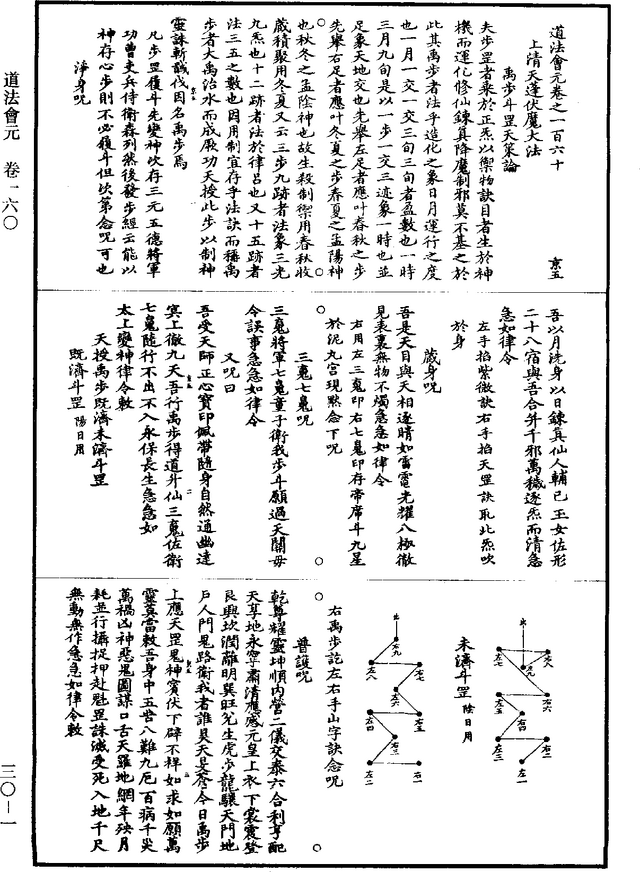 道法會元卷之一百六十
上清天蓬伏魔大法 京五
禹步斗罡天策論
夫步罡者乘於正炁以禦物訣目者生於神
機而運化修仙鍊真降魔制邪莫不基之於
此其禹步者法乎造化之象日月運行之度
也一月一交一交三旬三旬者盈數也一時
三月九旬是以一步一交三迹象一時也並
足象天地交也先舉左足者應叶春秋之步
先舉右足者應叶冬夏之步春夏之孟陽神
也秋冬之孟陰神也故生殺制禦用春秋收
歲積聚用冬夏又云三步九跡者法象三光
九炁也十二跡者法於律呂也又十五跡者
法三五之數也因用制宜存乎法訣而稱禹
步者大禹治水而成厥功天授此步以制神
靈誅斬馘伐因名禹步焉
凡步罡履斗先變神次存三元五德將軍
功曹吏兵侍衛森列然後發步經云能以
神存心步則不必履斗但次第念呪可也
淨身呪
吾以月洗身以日鍊真仙人輔已玉女佐形
二十八宿與吾合并千邪萬穢逐炁而清急
急如律令
左手掐紫微訣右手掐天罡訣取此炁吹
於身
藏身呪
吾是天目與天相逐睛如雷電光耀八極徹
見表裏無物不燭急急如律令
右用左三䰟印右七䰟印存帝席斗九星
於泥丸宮現默念下呪
三䰟七䰟呪
三䰟將軍七䰟童子衛我步斗願過天關毋
令誤事急急如律令
又呪曰
吾受天師正心寶印佩帶隨身自然通幽達
冥上徹九天吾行禹步得道升仙三䰟佐衛
七䰟隨行不出不入永保長生急急如
太上變神律令敕
天授禹步既濟未濟斗罡
既濟斗罡 陽日用
未濟斗罡 陰日用
右禹步訖左右手山字訣念呪
普護呪
乾尊耀靈坤順內營二儀交泰六合利亨配
天享地永寧肅清應感元皇上衣下裳震登
艮興坎潤離明巽旺兌生虎步龍驤天門地
戶人門鬼路衛我者誰昊天旻蒼今日禹步
上應天罡鬼神賓伏下辟不祥如求如願萬
靈莫當敕吾身中五苦八難九厄百病千災
萬禍凶神惡鬼圖謀口舌天羅地網年殃月
耗並行攝捉押赴魁罡誅滅受死入地千尺
無動無作急急如律令敕
道法會元 卷一六〇
三〇—一